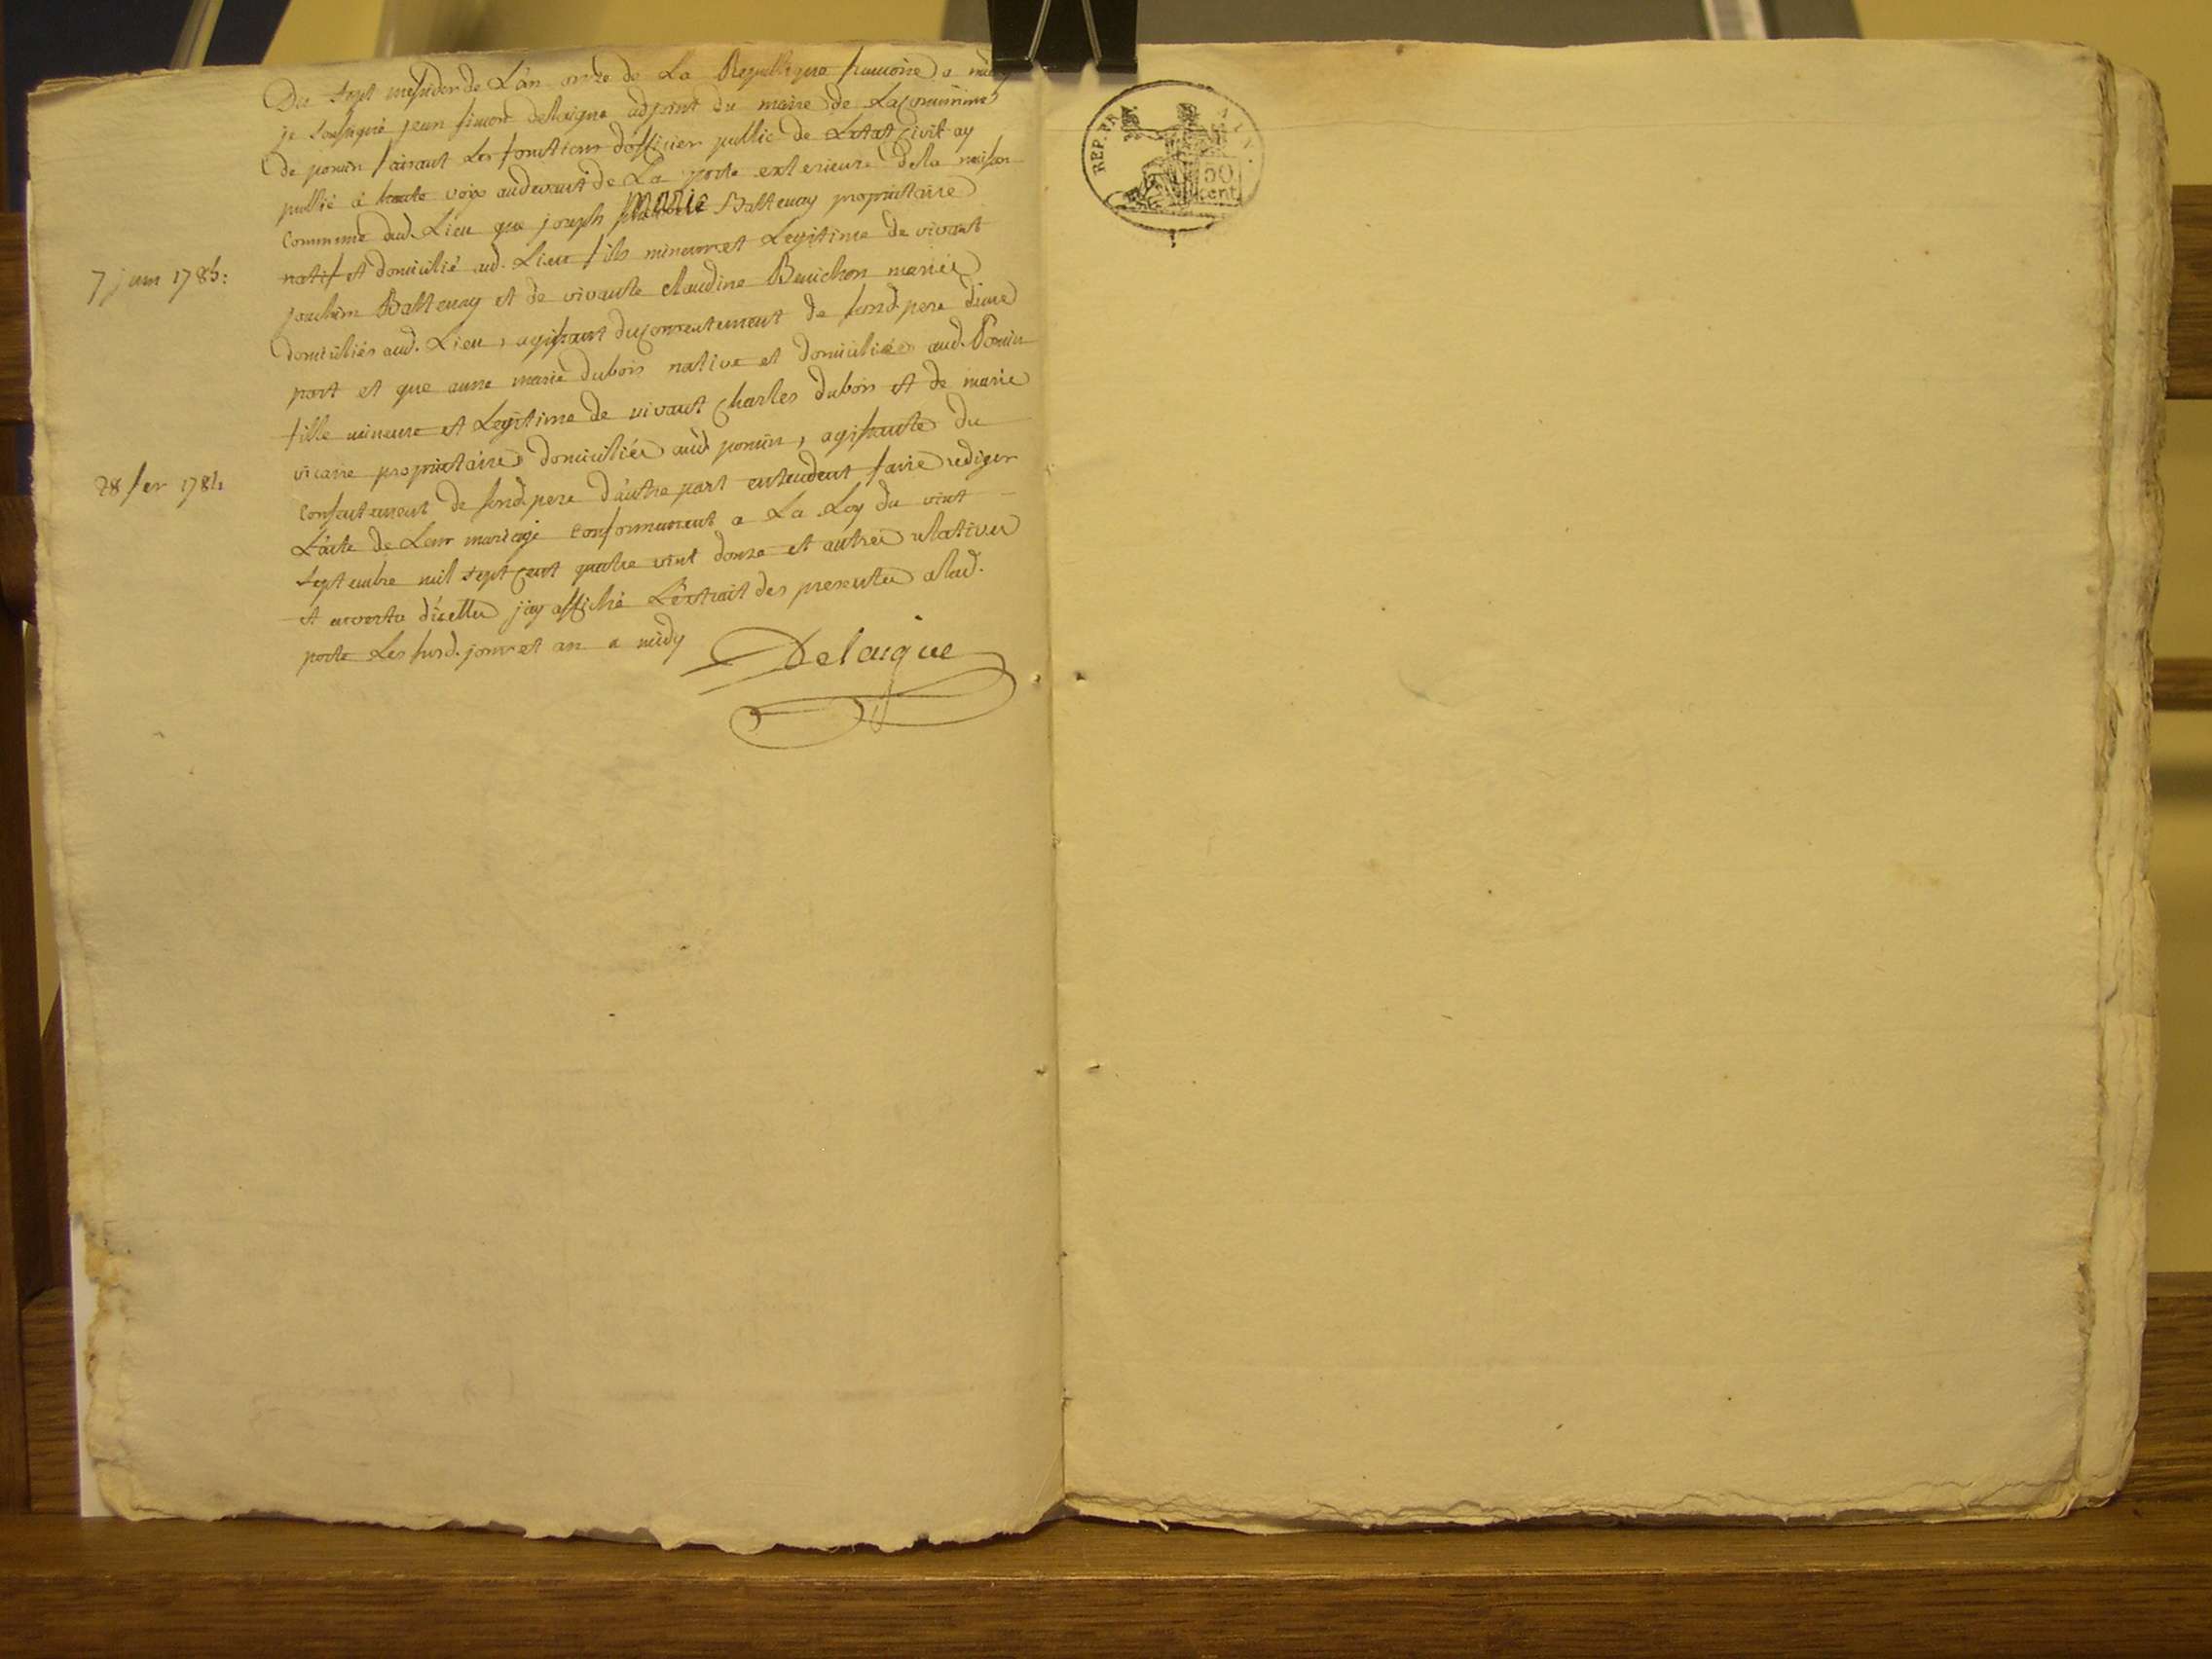 Du sept messidor de L'an onze de La Republique francoise a midy
je soussigné jean simon delaigue adjoint du maire de La commune
de poncin faisant Les fonctions d'officier public de L'etat Civil ay
publié à haute voix audevant de La porte exterieure de la maison
commune aud. Lieu que joseph marie Battenay propriétaire
7 juin 1785:
natif et domicilié aud. Lieu fils mineur et Legitime de vivant
joachim Battenay et de vivante claudine Bruichon mariés
domiciliés aud. Lieu, agissant du consentement de sond. pere d'une
part et que anne marie dubois native et domiciliée aud. Poncin
fille mineure et Legitime de vivant Charles dubois et de marie
vicaire propriétaires domiciliés aud. poncin, agissante du
28 fer 1784
consentement de sond. pere d'autre part entendent faire rediger
L'acte de Leur mariage conformement a La Loy du vint
septembre mil sept Cent quatre vint douze et autres relatives
et en vertu d'icelles j'ay affiché L'extrait des presentes a lad.
porte Les susd. jour et an a midy
Delaigue
REP. FRA
AIN.
50
cent.